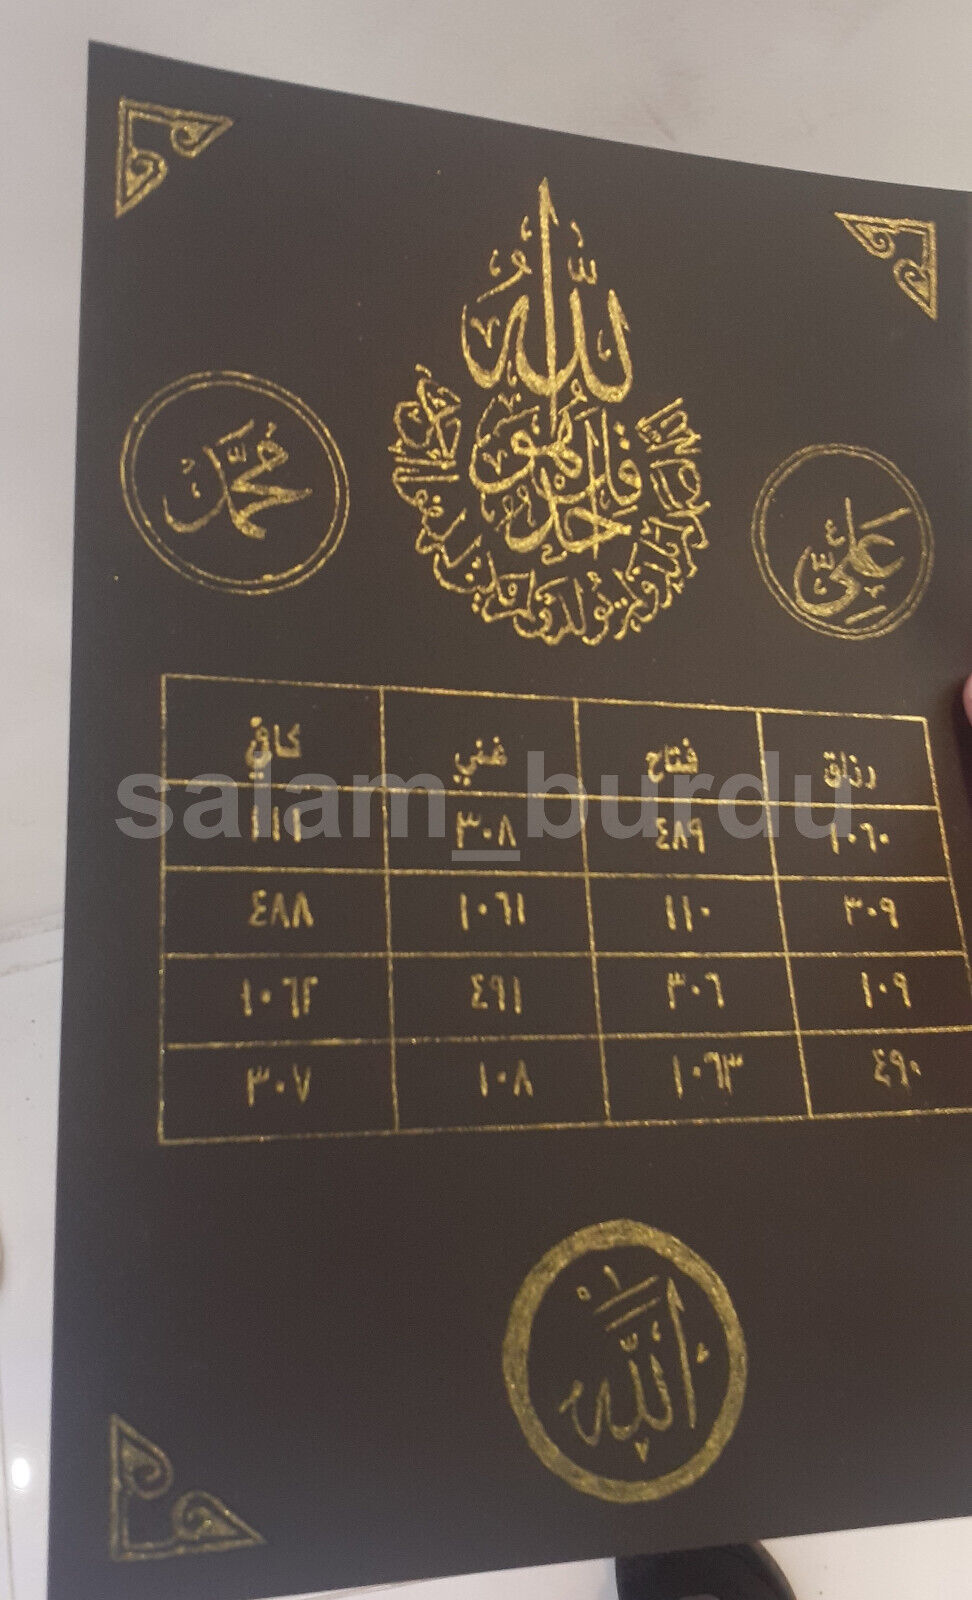 الله
قل هو الله أحد
الله الصمد لم يلد ولم يولد ولم يكن له كفوا أحد
محمد
علي
رزاق فتاح غني كافي
١٠٦٠ ٤٨٩ ٣٠٨ ١١١
٣٠٩ ١١٠ ١٠٦١ ٤٨٨
١٠٩ ٣٠٦ ٤٩١ ١٠٦٢
٤٩٠ ١٠٦٣ ١٠٨ ٣٠٧
الله
salam_burdu